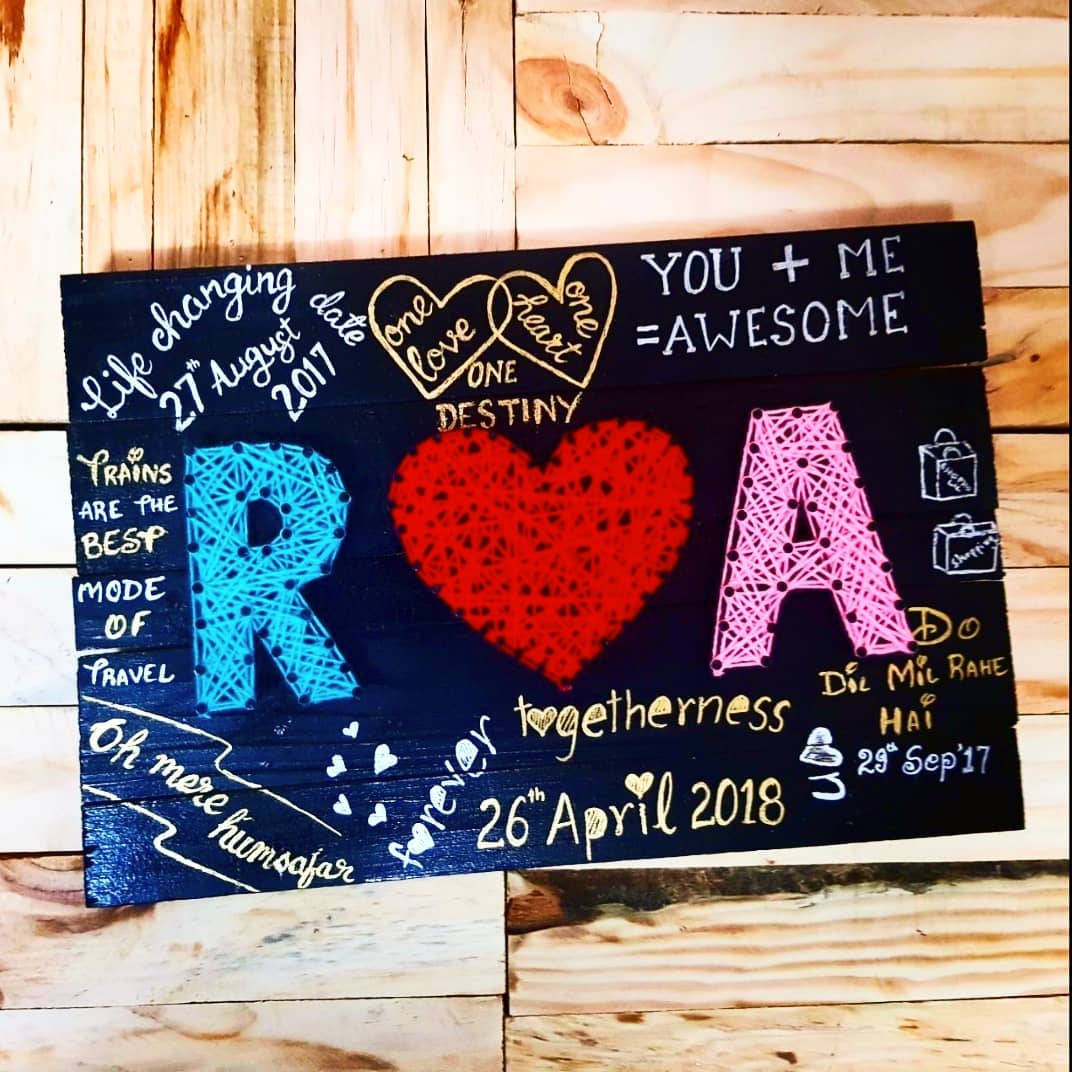 Life changing date
27th August
2017
one love
one heart
ONE
DESTINY
YOU + ME
=AWESOME
TRAINS
ARE THE
BEST
MODE
OF
TRAVEL
R A
shopping
DO
DIL MIL RAHE
HAI
29th Sep'17
togetherness
forever
26th April 2018
Oh mere humsafar